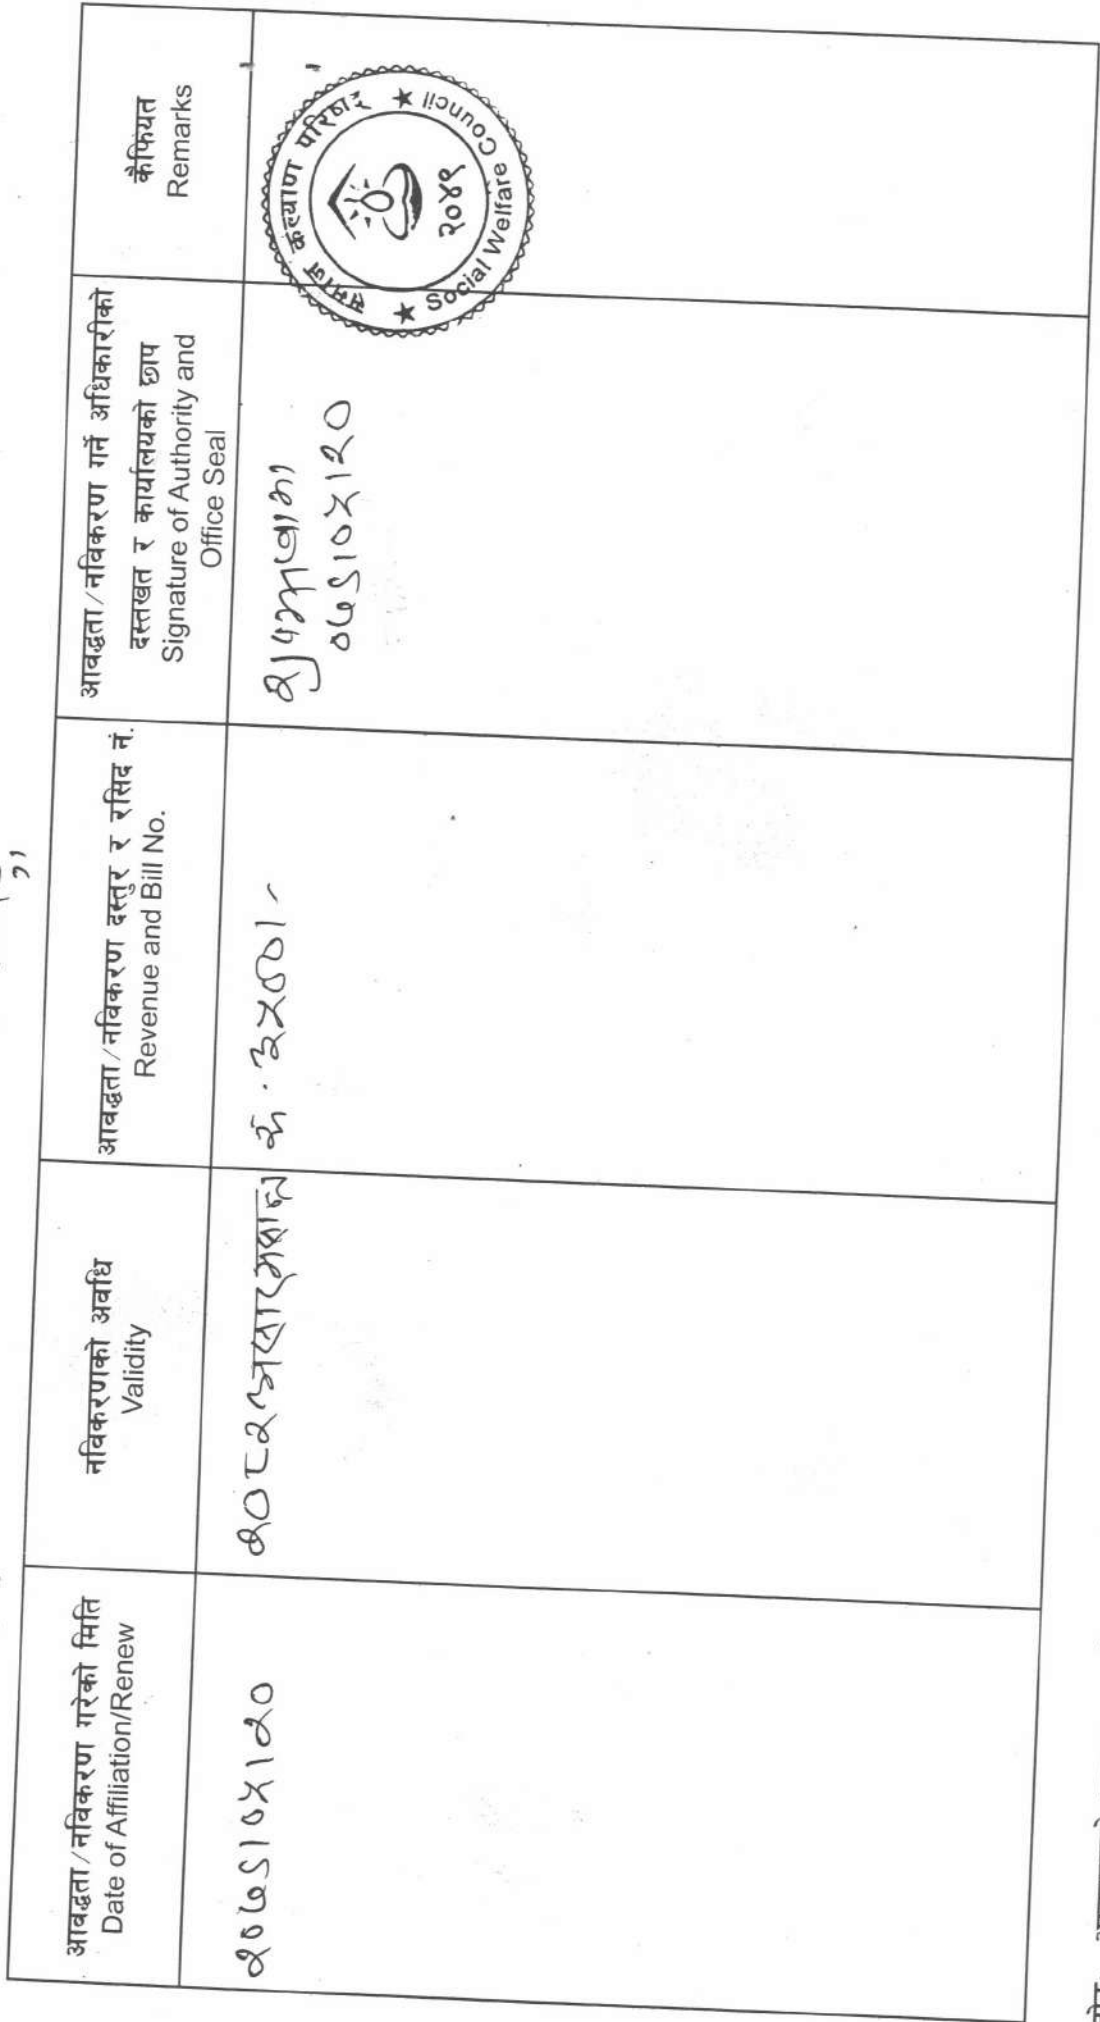 आवद्धता/नविकरण गरेको मिति
Date of Affiliation/Renew
नविकरणको अवधि
Validity
आवद्धता/नविकरण दस्तुर र रसिद नं.
Revenue and Bill No.
आवद्धता/नविकरण गर्ने अधिकारीको
दस्तखत र कार्यालयको छाप
Signature of Authority and
Office Seal
कैफियत
Remarks
२०७९।०५।२०
२०८२ असार मसान्त
रू. ३५००।-
०७९।०५।२०
समाज कल्याण परिषद
२०४९
Social Welfare Council